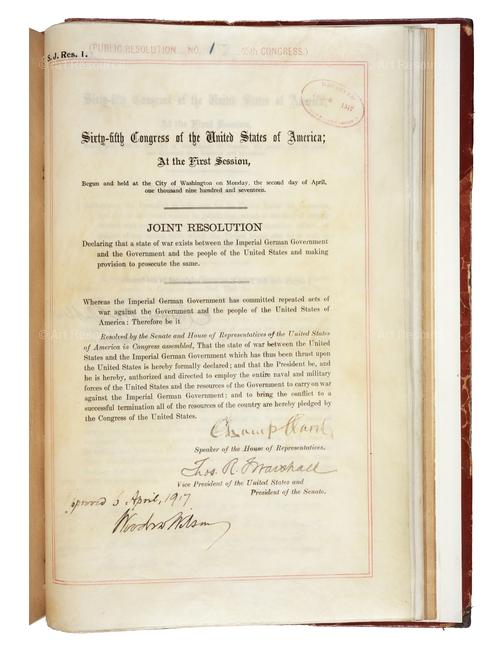 S. J. Res. 1.
(PUBLIC RESOLUTION NO. 1 65th CONGRESS.)
1917
Sixty-fifth Congress of the United States of America;
At the First Session,
Begun and held at the City of Washington on Monday, the second day of April,
one thousand nine hundred and seventeen.
JOINT RESOLUTION
Declaring that a state of war exists between the Imperial German Government
and the Government and the people of the United States and making
provision to prosecute the same.
Whereas the Imperial German Government has committed repeated acts of
war against the Government and the people of the United States of
America: Therefore be it
Resolved by the Senate and House of Representatives of the United States
of America in Congress assembled, That the state of war between the United
States and the Imperial German Government which has thus been thrust upon
the United States is hereby formally declared; and that the President be, and
he is hereby, authorized and directed to employ the entire naval and military
forces of the United States and the resources of the Government to carry on war
against the Imperial German Government; and to bring the conflict to a
successful termination all of the resources of the country are hereby pledged by
the Congress of the United States.
Champ Clark
Speaker of the House of Representatives.
Thos. R. Marshall
Vice President of the United States and
President of the Senate.
Approved 6 April, 1917
Woodrow Wilson
© Art Resource